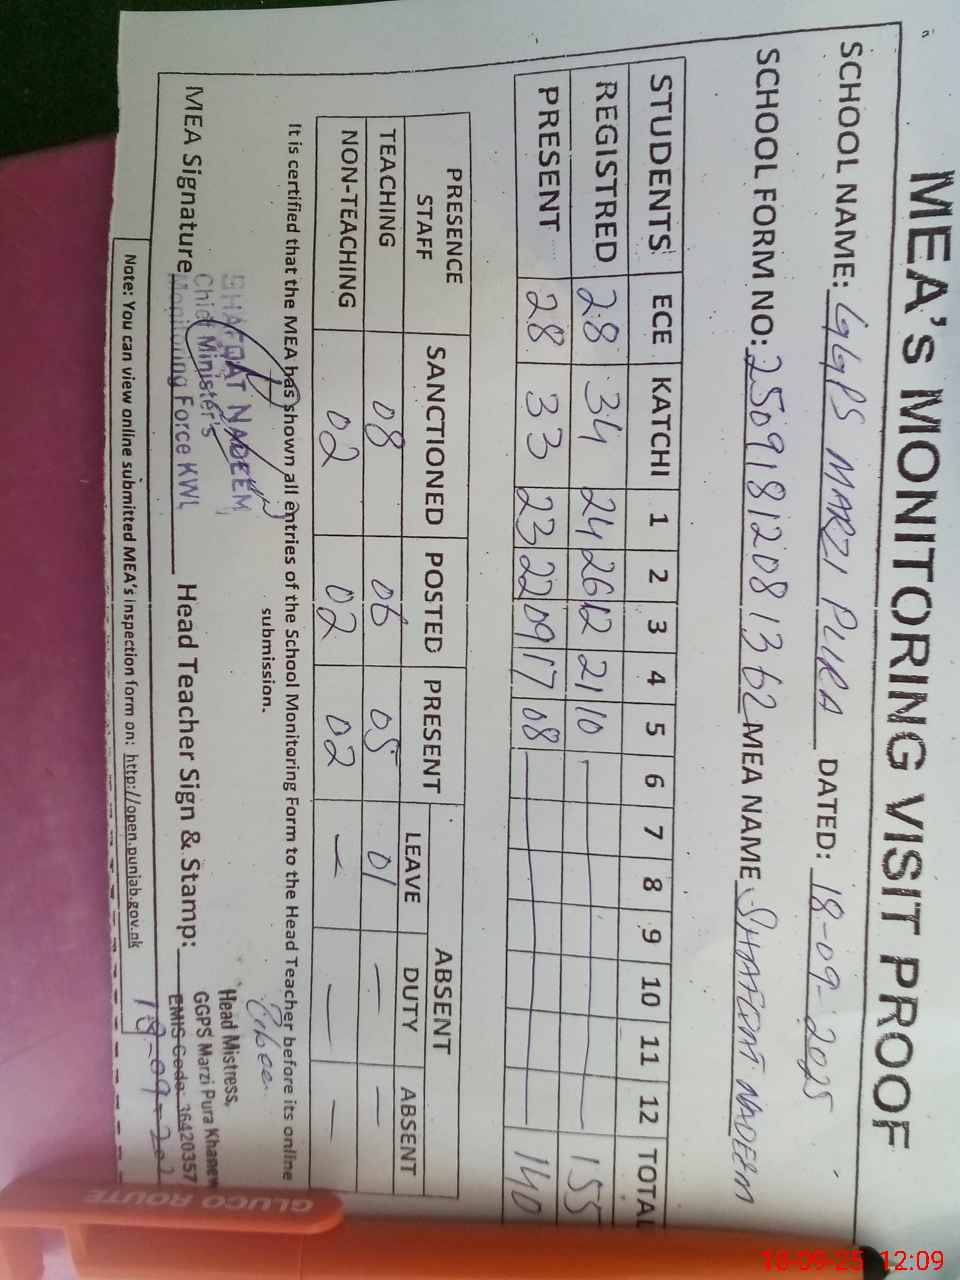 MEA'S MONITORING VISIT PROOF
SCHOOL NAME: GGPS MARZI PURA DATED: 18-09-2025
SCHOOL FORM NO: 25091812081362 MEA NAME SHAFQAT NADEEM
STUDENTS ECE KATCHI 1 2 3 4 5 6 7 8 9 10 11 12 TOTAL
REGISTRED 28 34 24 26 12 21 10 — 155
PRESENT 28 33 23 22 09 17 08 — 140
PRESENCE STAFF SANCTIONED POSTED PRESENT ABSENT
LEAVE DUTY ABSENT
TEACHING 08 06 05 01 — —
NON-TEACHING 02 02 02 — — —
It is certified that the MEA has shown all entries of the School Monitoring Form to the Head Teacher before its online
submission.
SHAFQAT NADEEM
Chief Minister's
Monitoring Force KWL
MEA Signature Head Teacher Sign & Stamp:
Head Mistress,
GGPS Marzi Pura Khanew
EMIS Code: 36420357
18-09-202
Note: You can view online submitted MEA's inspection form on: http://open.punjab.gov.pk
GLUCO ROUTE
18-09-25 12:09